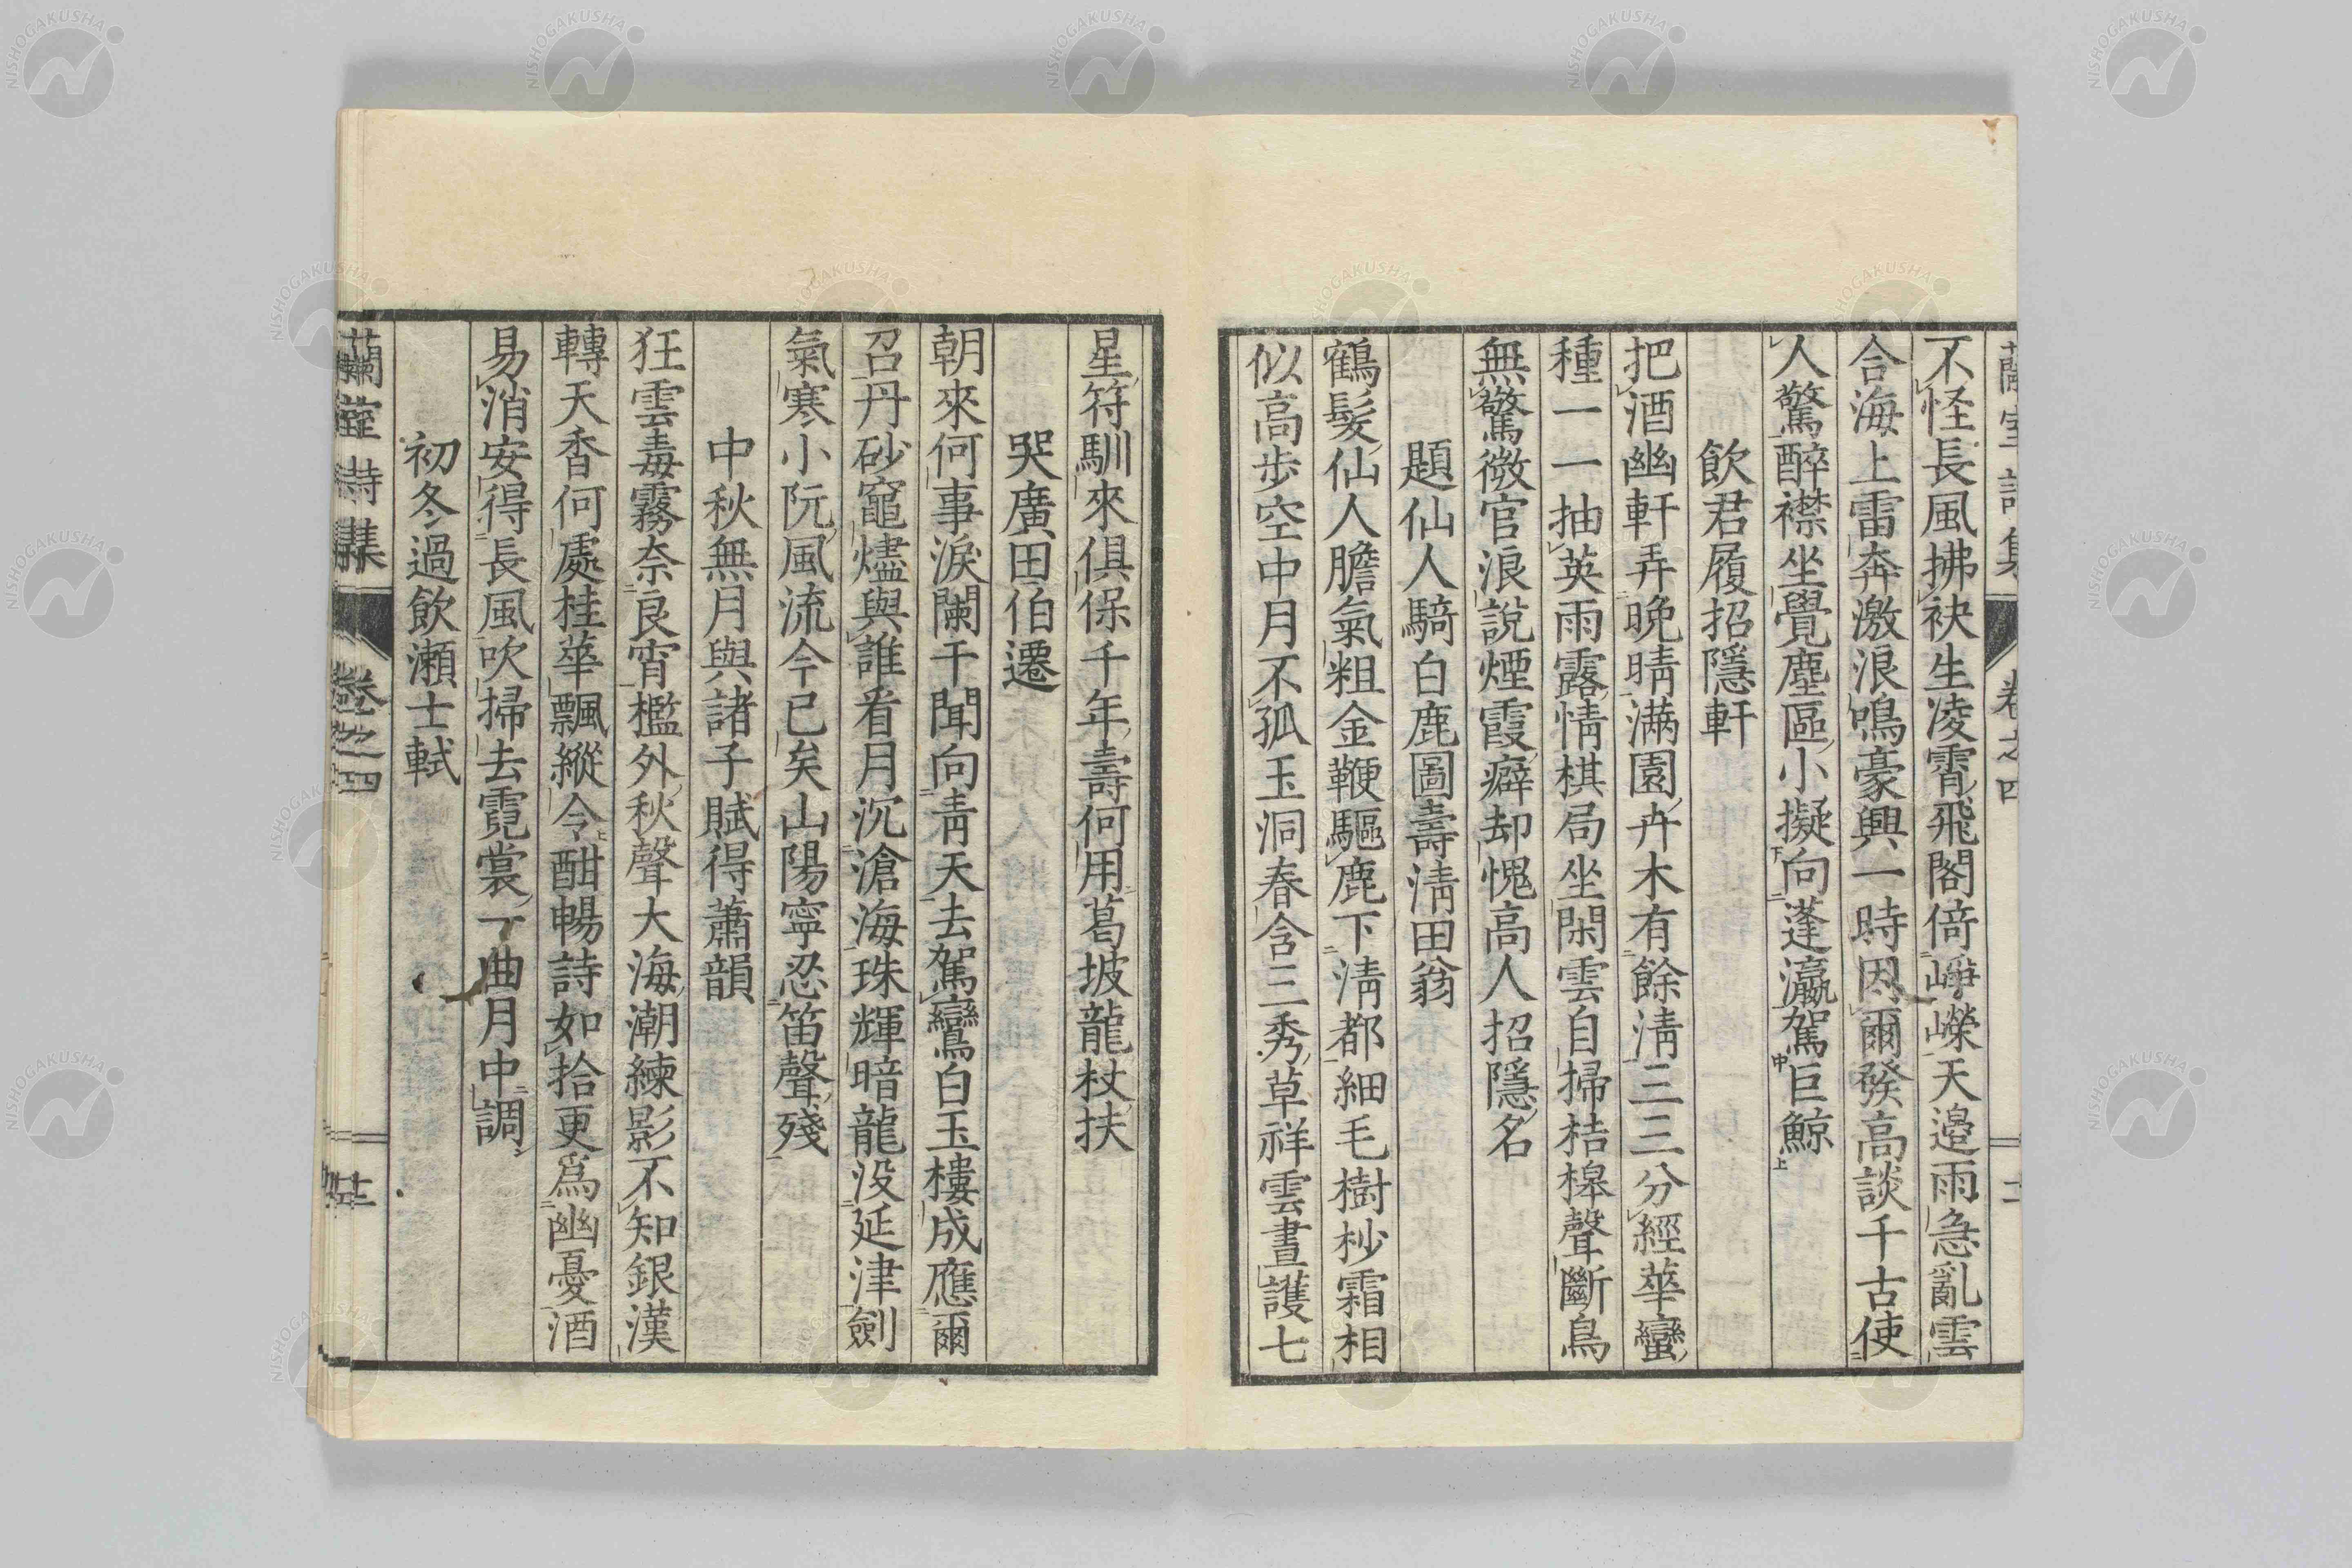 蘭室詩集 卷之四 二
不怪長風拂袂生凌霄飛閣倚崢嶸天邉雨急亂雲
合海上雷奔激浪鳴豪興一時因爾發高談千古使
人驚醉襟坐覺塵區小擬向蓬瀛駕巨鯨
飲君履招隱軒
把酒幽軒弄晚晴滿園卉木有餘淸三三分經華蠻
種一一抽英雨露情棋局坐閑雲自掃桔槹聲斷鳥
無驚微官浪說煙霞癖却愧高人招隱名
題仙人騎白鹿圖壽淸田翁
鶴髮仙人膽氣粗金鞭驅鹿下淸都細毛樹杪霜相
似高步空中月不孤玉洞春含三秀草祥雲晝護七
星符馴來俱保千年壽何用葛坡龍杖扶
哭廣田伯遷
朝來何事淚闌干聞向靑天去駕鸞白玉樓成應爾
召丹砂竈燼與誰看月沉滄海珠輝暗龍没延津劍
氣寒小阮風流今已矣山陽寧忍笛聲殘
中秋無月與諸子賦得蕭韻
狂雲毒霧奈良宵檻外秋聲大海潮練影不知銀漢
轉天香何處桂華飄縱令酣暢詩如拾更爲幽憂酒
易消安得長風吹掃去霓裳一曲月中調
初冬過飲瀨士軾
蘭室詩集 卷之四
NISHOGAKUSHA